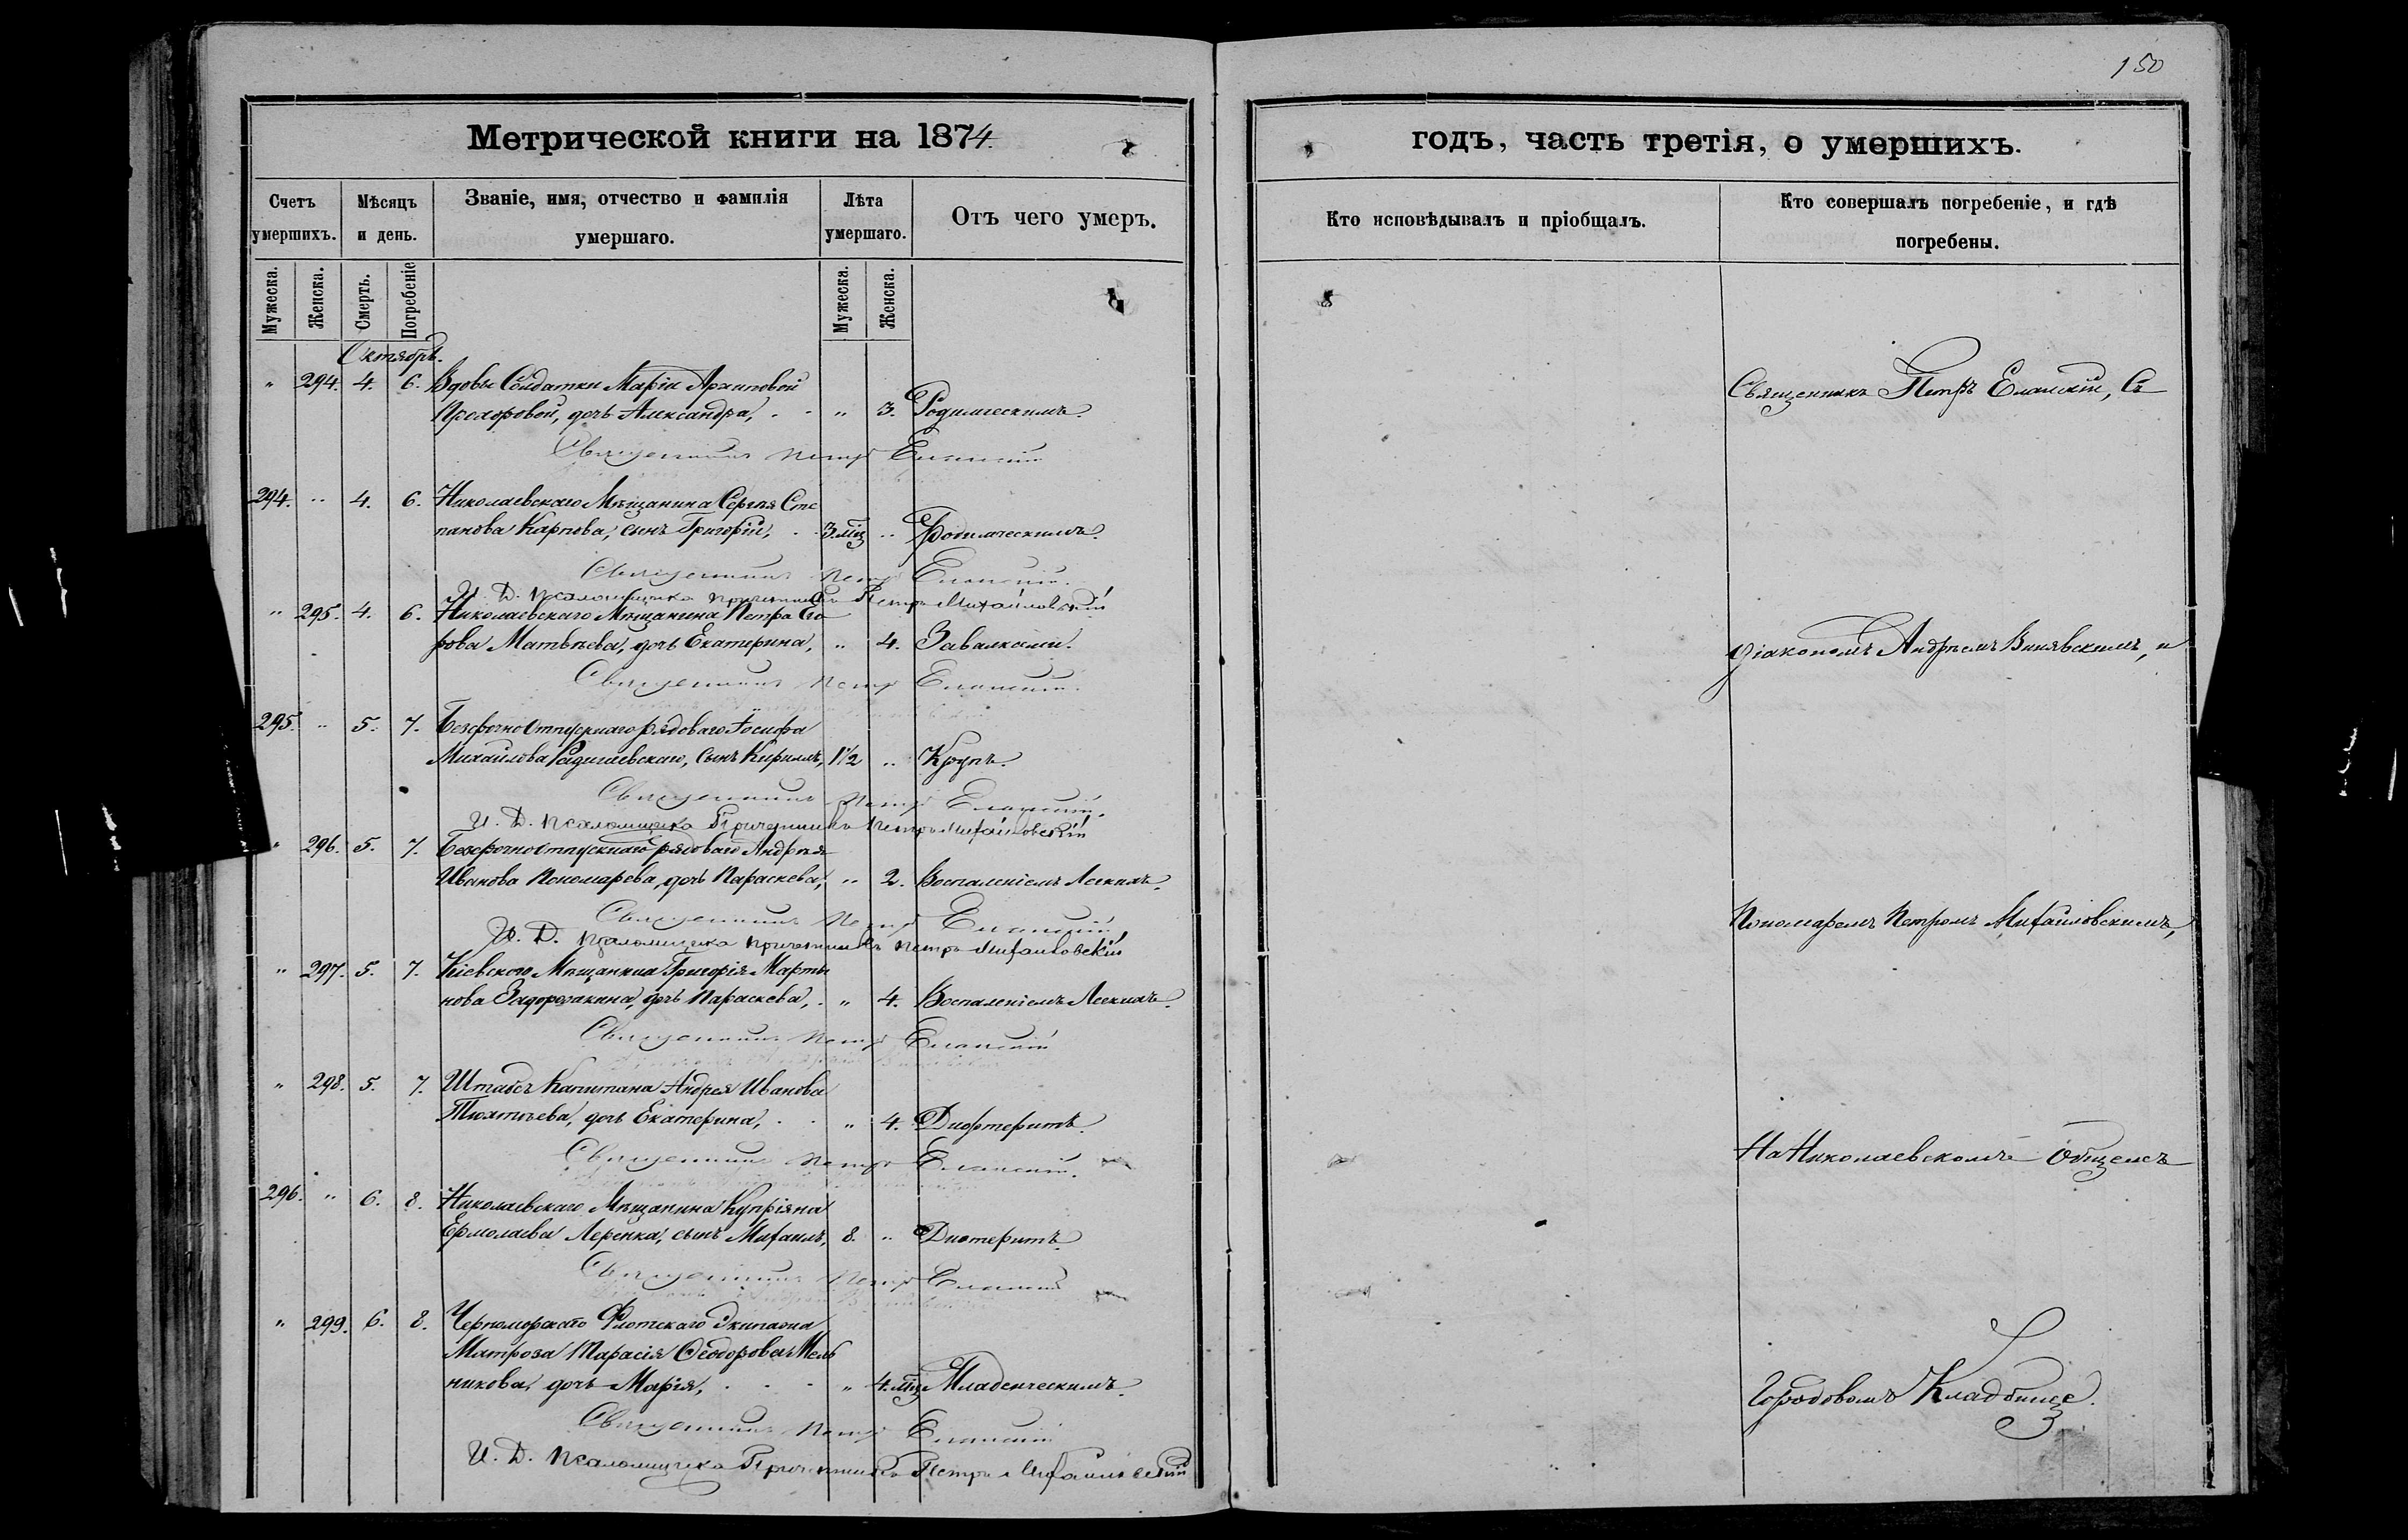 150
Метрической книги на 1874
годъ, часть третія, о умершихъ.
Счетъ умершихъ.
Мѣсяцъ и день.
Званіе, имя, отчество и фамилія умершаго.
Лѣта умершаго.
Отъ чего умеръ.
Кто исповѣдывалъ и пріобщалъ.
Кто совершалъ погребеніе, и гдѣ погребены.
Мужеска.
Женска.
Смерть.
Погребеніе
Мужеска.
Женска.
Октябрь.
" 294. 4. 6. Вдовы Солдатки Маріи Архиповой
Прохоровой, дочь Александра, " 3. Родимческимъ.
Священникъ Петръ Еланскій
294. " 4. 6. Николаевскаго Мѣщанина Сергѣя Сте
панова Карпова, сынъ Григорій, 3. мц " Родимческимъ.
Священникъ Петръ Еланскій.
И. Д. Псаломщика Причетникъ Петръ Михайловскій
" 295. 4. 6. Николаевскаго Мѣщанина Петра Его
рова Матвѣева, дочь Екатерина, " 4. Завалками.
Священникъ Петръ Еланскій.
295. " 5. 7. Безсрочноотпускнаго рядоваго Іосифа
Михайлова сынъ Кирилъ, 1½ " Крупъ.
Священникъ Петръ Еланскій.
И. Д. Псаломщика Причетникъ Петръ Михайловскій
" 296. 5. 7. Безсрочноотпускнаго рядоваго Андрѣя
Иванова Пономарева, дочь Параскева, " 2. Воспаленіемъ Легкихъ.
Священникъ Петръ Еланскій
И. Д. Псаломщика Причетникъ Петръ Михайловскій
" 297. 5. 7. Кіевскаго Мѣщанина Григорія Марты
нова дочь Параскева, " 4. Воспаленіемъ Легкихъ.
Священникъ Петръ Еланскій
" 298. 5. 7. Штабсъ Капитана Андрея Иванова
дочь Екатерина, " 4. Дифтеритъ.
Священникъ Петръ Еланскій.
296. " 6. 8. Николаевскаго Мѣщанина Купріяна
Ермолаева сынъ Михаилъ, 8. " Дифтеритъ.
Священникъ Петръ Еланскій
" 299. 6. 8. Черноморскаго Флотскаго Экипажа
Матроза Тарасія Ѳеодорова Мель
никова, дочь Марія, " 4. мц Младенческимъ.
Священникъ Петръ Еланскій
И. Д. Псаломщика Причетникъ Петръ Михайловскій
Священникъ Петръ Еланскій, Съ
Діакономъ Андреемъ Винявскимъ, и
Пономаремъ Петромъ Михайловскимъ,
На Николаевскомъ Общемъ
Городовомъ Кладбище.